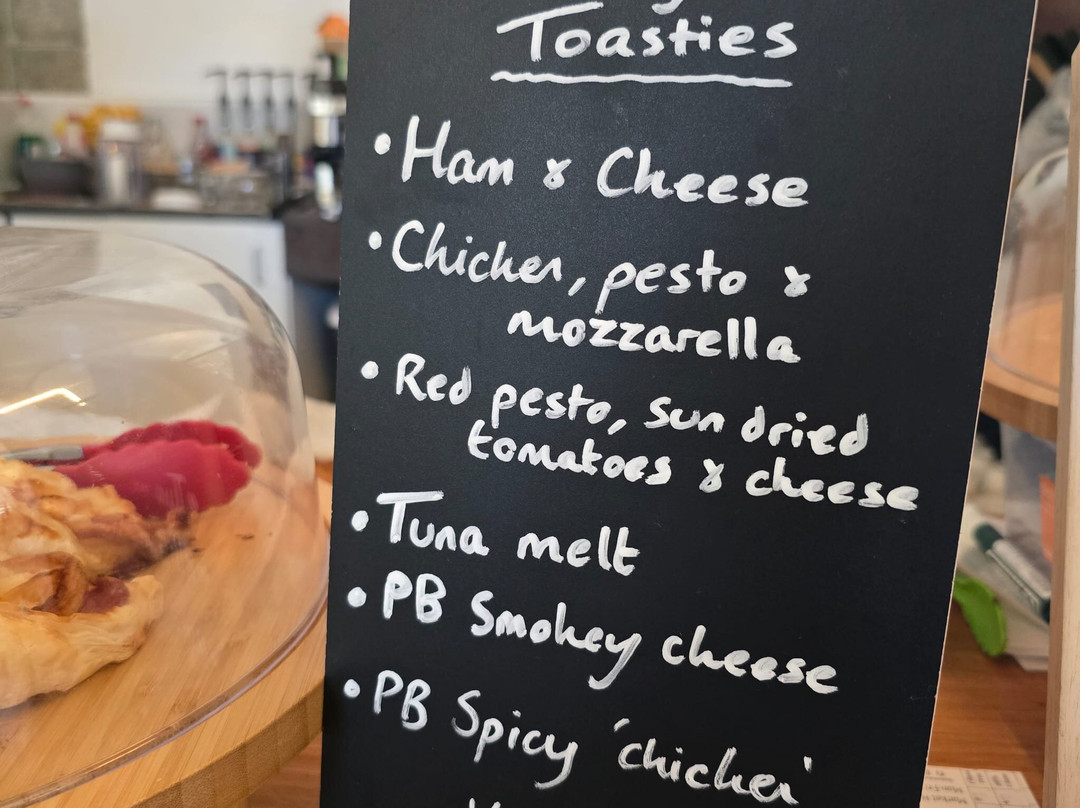 Toasties
• Ham & Cheese
• Chicken, pesto &
mozzarella
• Red pesto, sun dried
tomatoes & cheese
• Tuna melt
• PB Smokey cheese
• PB Spicy 'chicken'